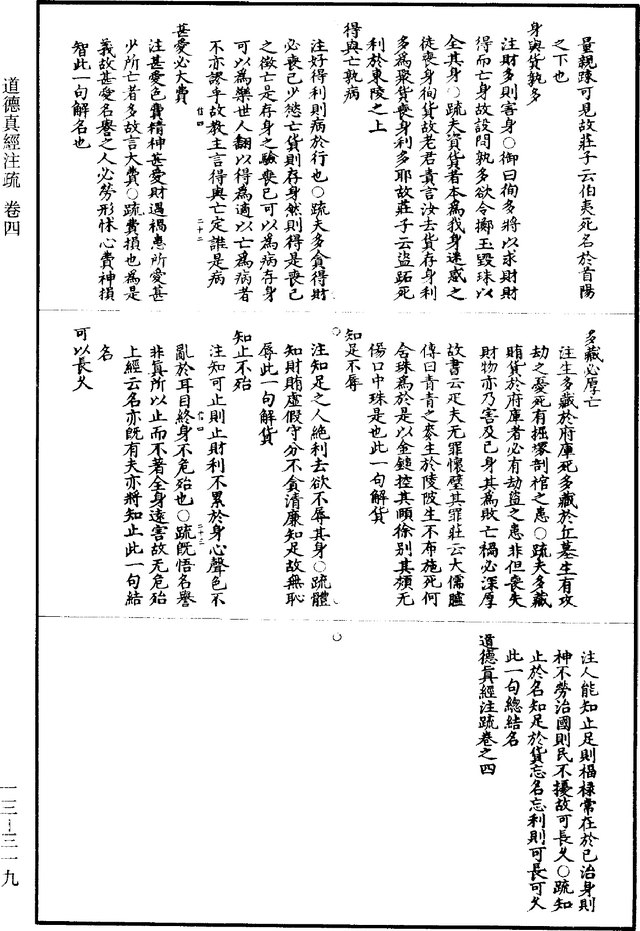 量親踈可見故莊子云伯夷死名於首陽
之下也
身與貨孰多
注財多則害身○御曰徇多將以求財財
得而亡身故設問孰多欲令擲玉毀珠以
全其身○疏夫資貨者本為我身迷惑之
徒喪身徇貨故老君責言汝去貨存身利
多為聚貨喪身利多耶故莊子云盜跖死
利於東陵之上
得與亡孰病
注好得利則病於行也○疏夫多貪得財
必喪己少慾亡貨則存身然則得是喪己
之徵亡是存身之驗喪己可以為病存身
可以為樂世人翻以得為適以亡為病者
不亦謬乎故教主言得與亡定誰是病
廿四
二十二
甚愛必大費
注甚愛色費精神甚愛財遇禍患所愛甚
少所亡者多故言大費○疏費損也為是
義故甚愛名譽之人必勞形怵心費神損
智此一句解名也
多藏必厚亡
注生多藏於府庫死多藏於丘墓生有攻
劫之憂死有掘塚剖棺之患○疏夫多藏
賄貨於府庫者必有劫盜之患非但喪失
財物亦乃害及己身其為敗亡禍必深厚
故書云疋夫无罪懷璧其罪莊云大儒臚
傳曰青青之麥生於陵陂生不布施死何
含珠為於是以金鎚控其頤徐別其頰无
傷口中珠是也此一句解貨
知足不辱
注知足之人絶利去欲不辱其身○疏體
知財賄虛假守分不貪清廉知足故無恥
辱此一句解貨
知止不殆
注知可止則止財利不累於身心聲色不
廿四
二十三
亂於耳目終身不危殆也○疏既悟名譽
非真所以止而不著全身遠害故无危殆
上經云名亦既有夫亦將知止此一句結
名
可以長久
注人能知止足則福祿常在於己治身則
神不勞治國則民不擾故可長久○疏知
止於名知足於貨忘名忘利則可長可久
此一句總結名
道德真經注疏卷之四
道德真經注疏 卷四
一三—三一九